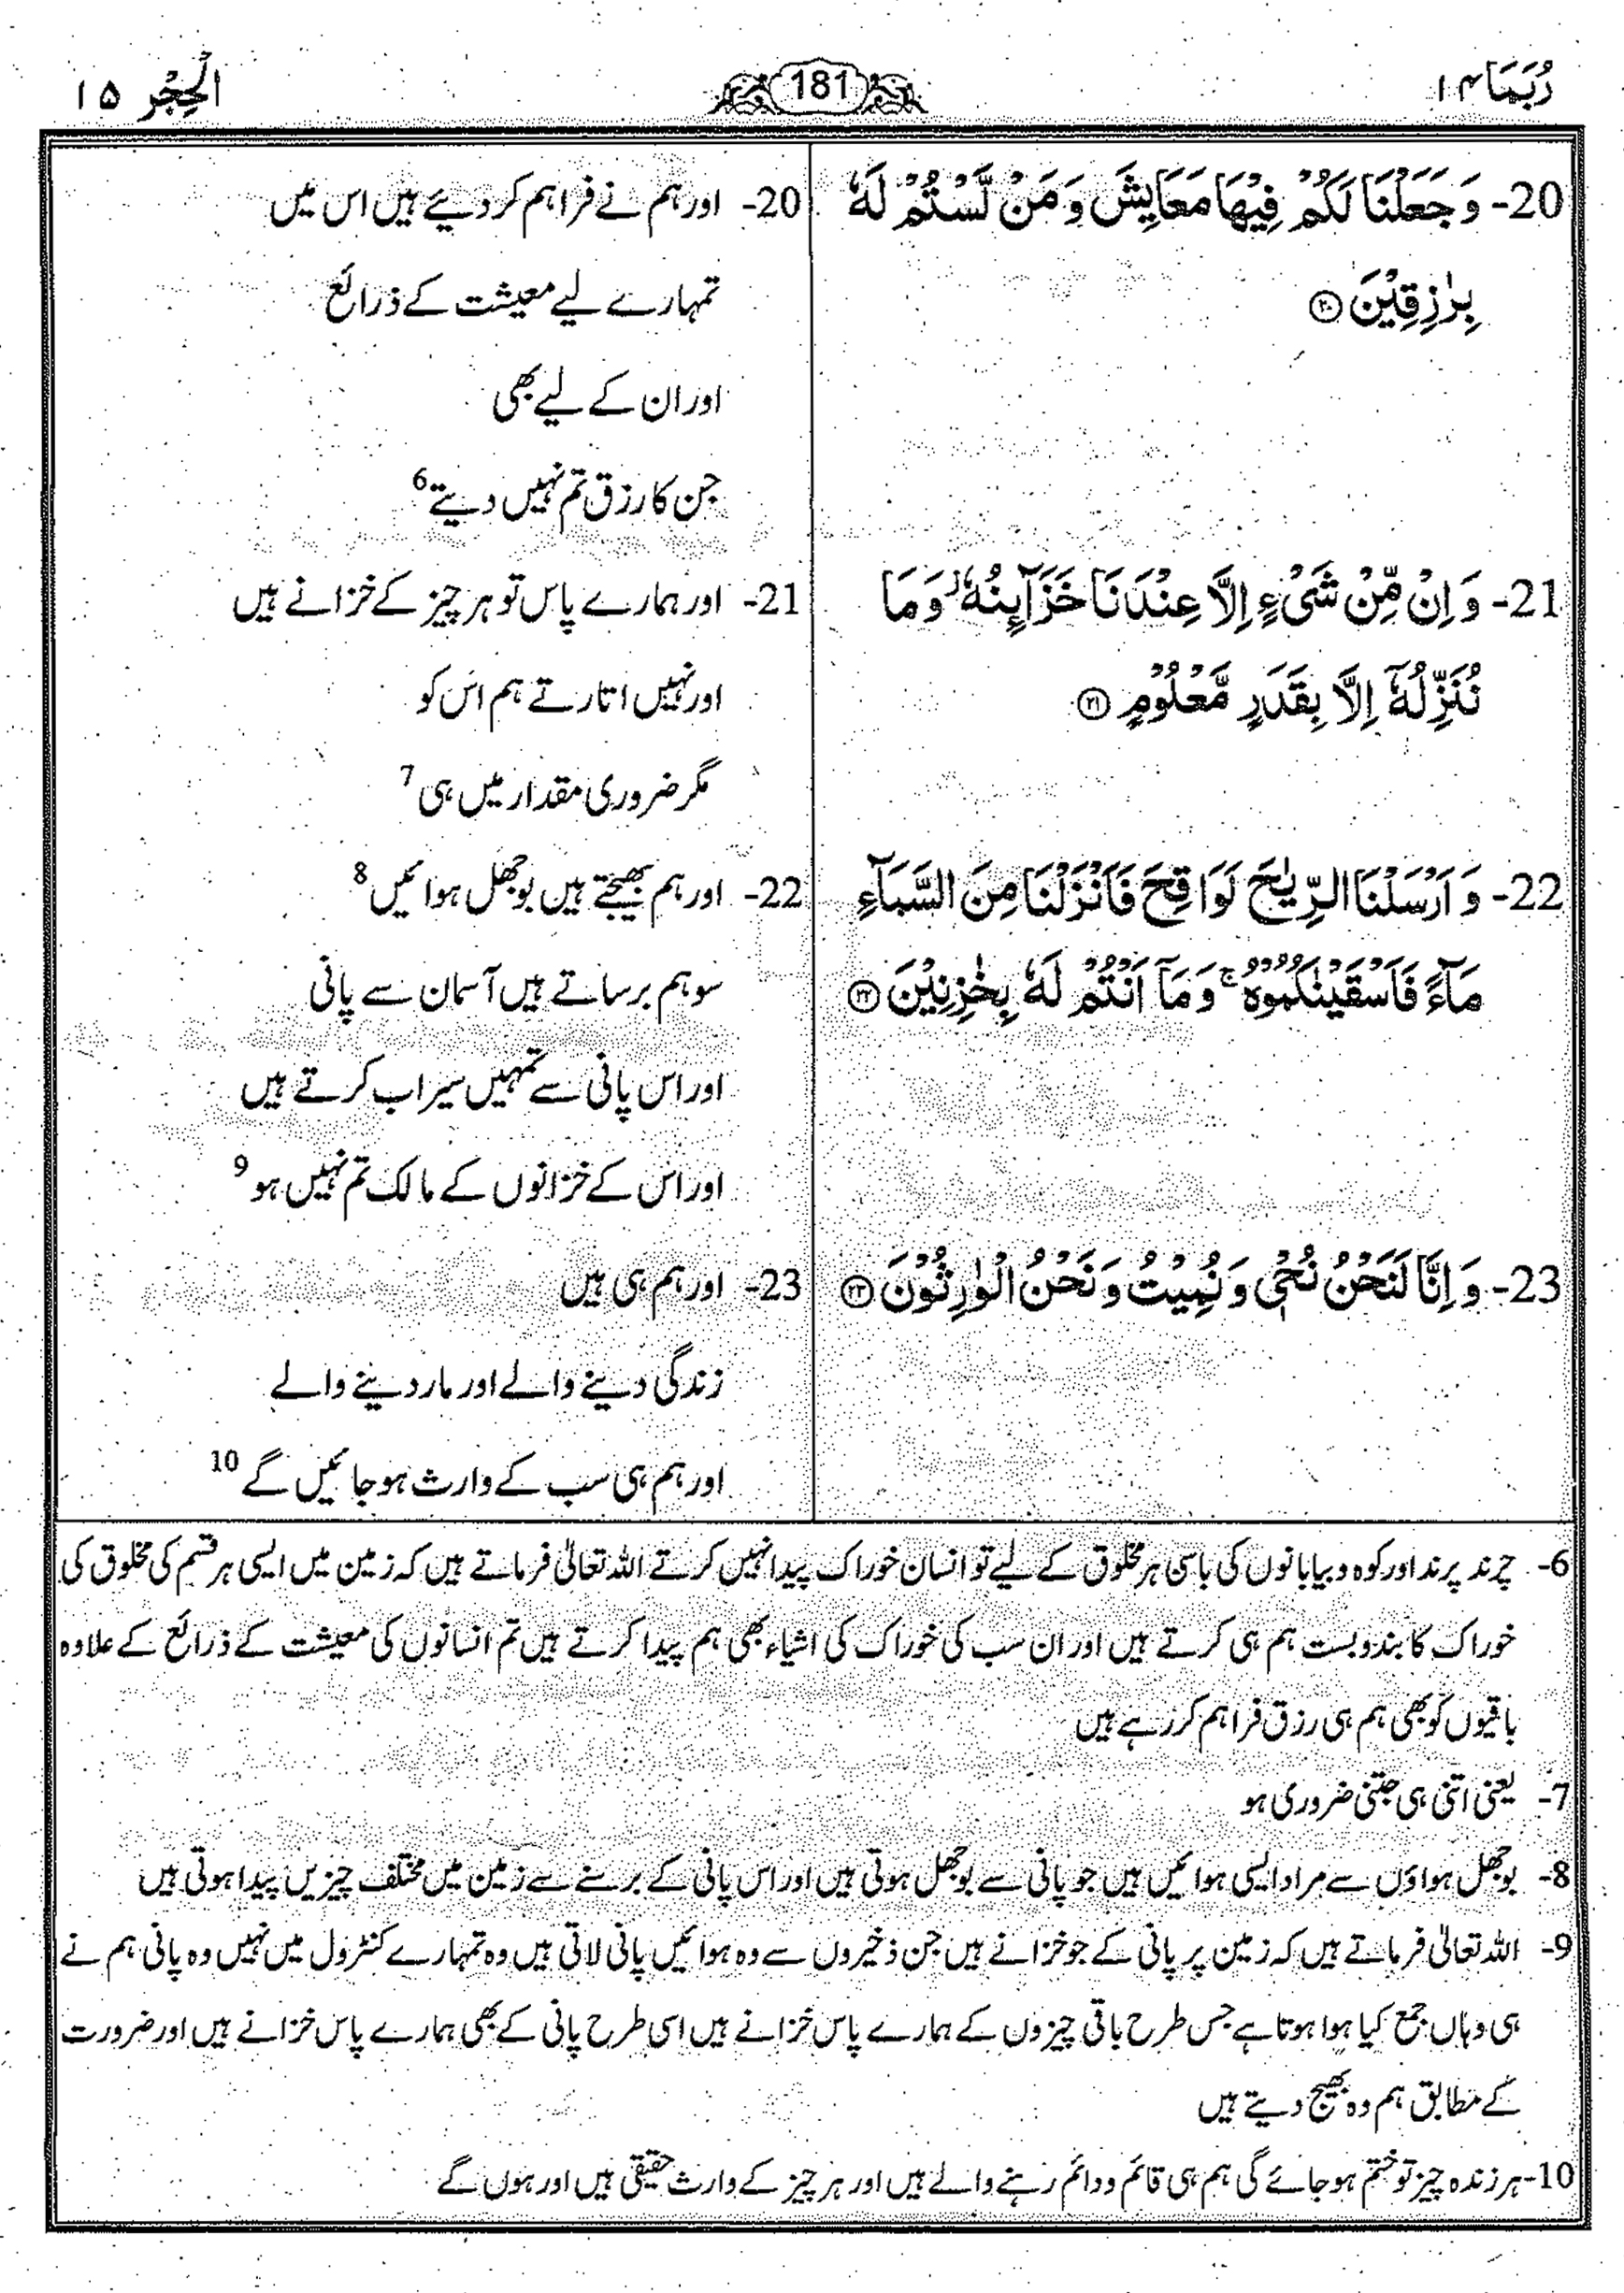 رُبَمَا ۱۴
181
الْحِجْر ۱۵
20- وَ جَعَلْنَا لَكُمْ فِيْهَا مَعَايِشَ وَ مَنْ لَّسْتُمْ لَهٗ
بِرٰزِقِيْنَ ۝۲۰
21- وَ اِنْ مِّنْ شَيْءٍ اِلَّا عِنْدَنَا خَزَآىِٕنُهٗ ۡ وَ مَا
نُنَزِّلُهٗۤ اِلَّا بِقَدَرٍ مَّعْلُوْمٍ ۝۲۱
22- وَ اَرْسَلْنَا الرِّيٰحَ لَوَاقِحَ فَاَنْزَلْنَا مِنَ السَّمَآءِ
مَآءً فَاَسْقَيْنٰكُمُوْهُ ۚ وَ مَاۤ اَنْتُمْ لَهٗ بِخٰزِنِيْنَ ۝۲۲
23- وَ اِنَّا لَنَحْنُ نُحْيٖ وَ نُمِيْتُ وَ نَحْنُ الْوٰرِثُوْنَ ۝۲۳
20- اور ہم نے فراہم کر دیئے ہیں اس میں
تمہارے لیے معیشت کے ذرائع
اور ان کے لیے بھی
جن کا رزق تم نہیں دیتے 6
21- اور ہمارے پاس تو ہر چیز کے خزانے ہیں
اور نہیں اتارتے ہم اس کو
مگر ضروری مقدار میں ہی 7
22- اور ہم بھیجتے ہیں بوجھل ہوائیں 8
سو ہم برساتے ہیں آسمان سے پانی
اور اس پانی سے تمہیں سیراب کرتے ہیں
اور اس کے خزانوں کے مالک تم نہیں ہو 9
23- اور ہم ہی ہیں
زندگی دینے والے اور مار دینے والے
اور ہم ہی سب کے وارث ہو جائیں گے 10
6- چرند پرند اور کوہ و بیابانوں کی باسی ہر مخلوق کے لیے تو انسان خوراک پیدا نہیں کرتے اللہ تعالیٰ فرماتے ہیں کہ زمین میں ایسی ہر قسم کی مخلوق کی
خوراک کا بندوبست ہم ہی کرتے ہیں اور ان سب کی خوراک کی اشیاء بھی ہم پیدا کرتے ہیں تم انسانوں کی معیشت کے ذرائع کے علاوہ
باقیوں کو بھی ہم ہی رزق فراہم کر رہے ہیں
7- یعنی اتنی ہی جتنی ضروری ہو
8- بوجھل ہواؤں سے مراد ایسی ہوائیں ہیں جو پانی سے بوجھل ہوتی ہیں اور اس پانی کے برسنے سے زمین میں مختلف چیزیں پیدا ہوتی ہیں
9- اللہ تعالیٰ فرماتے ہیں کہ زمین پر پانی کے جو خزانے ہیں جن ذخیروں سے وہ ہوائیں پانی لاتی ہیں وہ تمہارے کنٹرول میں نہیں وہ پانی ہم نے
ہی وہاں جمع کیا ہوا ہوتا ہے جس طرح باقی چیزوں کے ہمارے پاس خزانے ہیں اسی طرح پانی کے بھی ہمارے پاس خزانے ہیں اور ضرورت
کے مطابق ہم وہ بھیج دیتے ہیں
10- ہر زندہ چیز تو ختم ہو جائے گی ہم ہی قائم و دائم رہنے والے ہیں اور ہر چیز کے وارث حقیقی ہیں اور ہوں گے